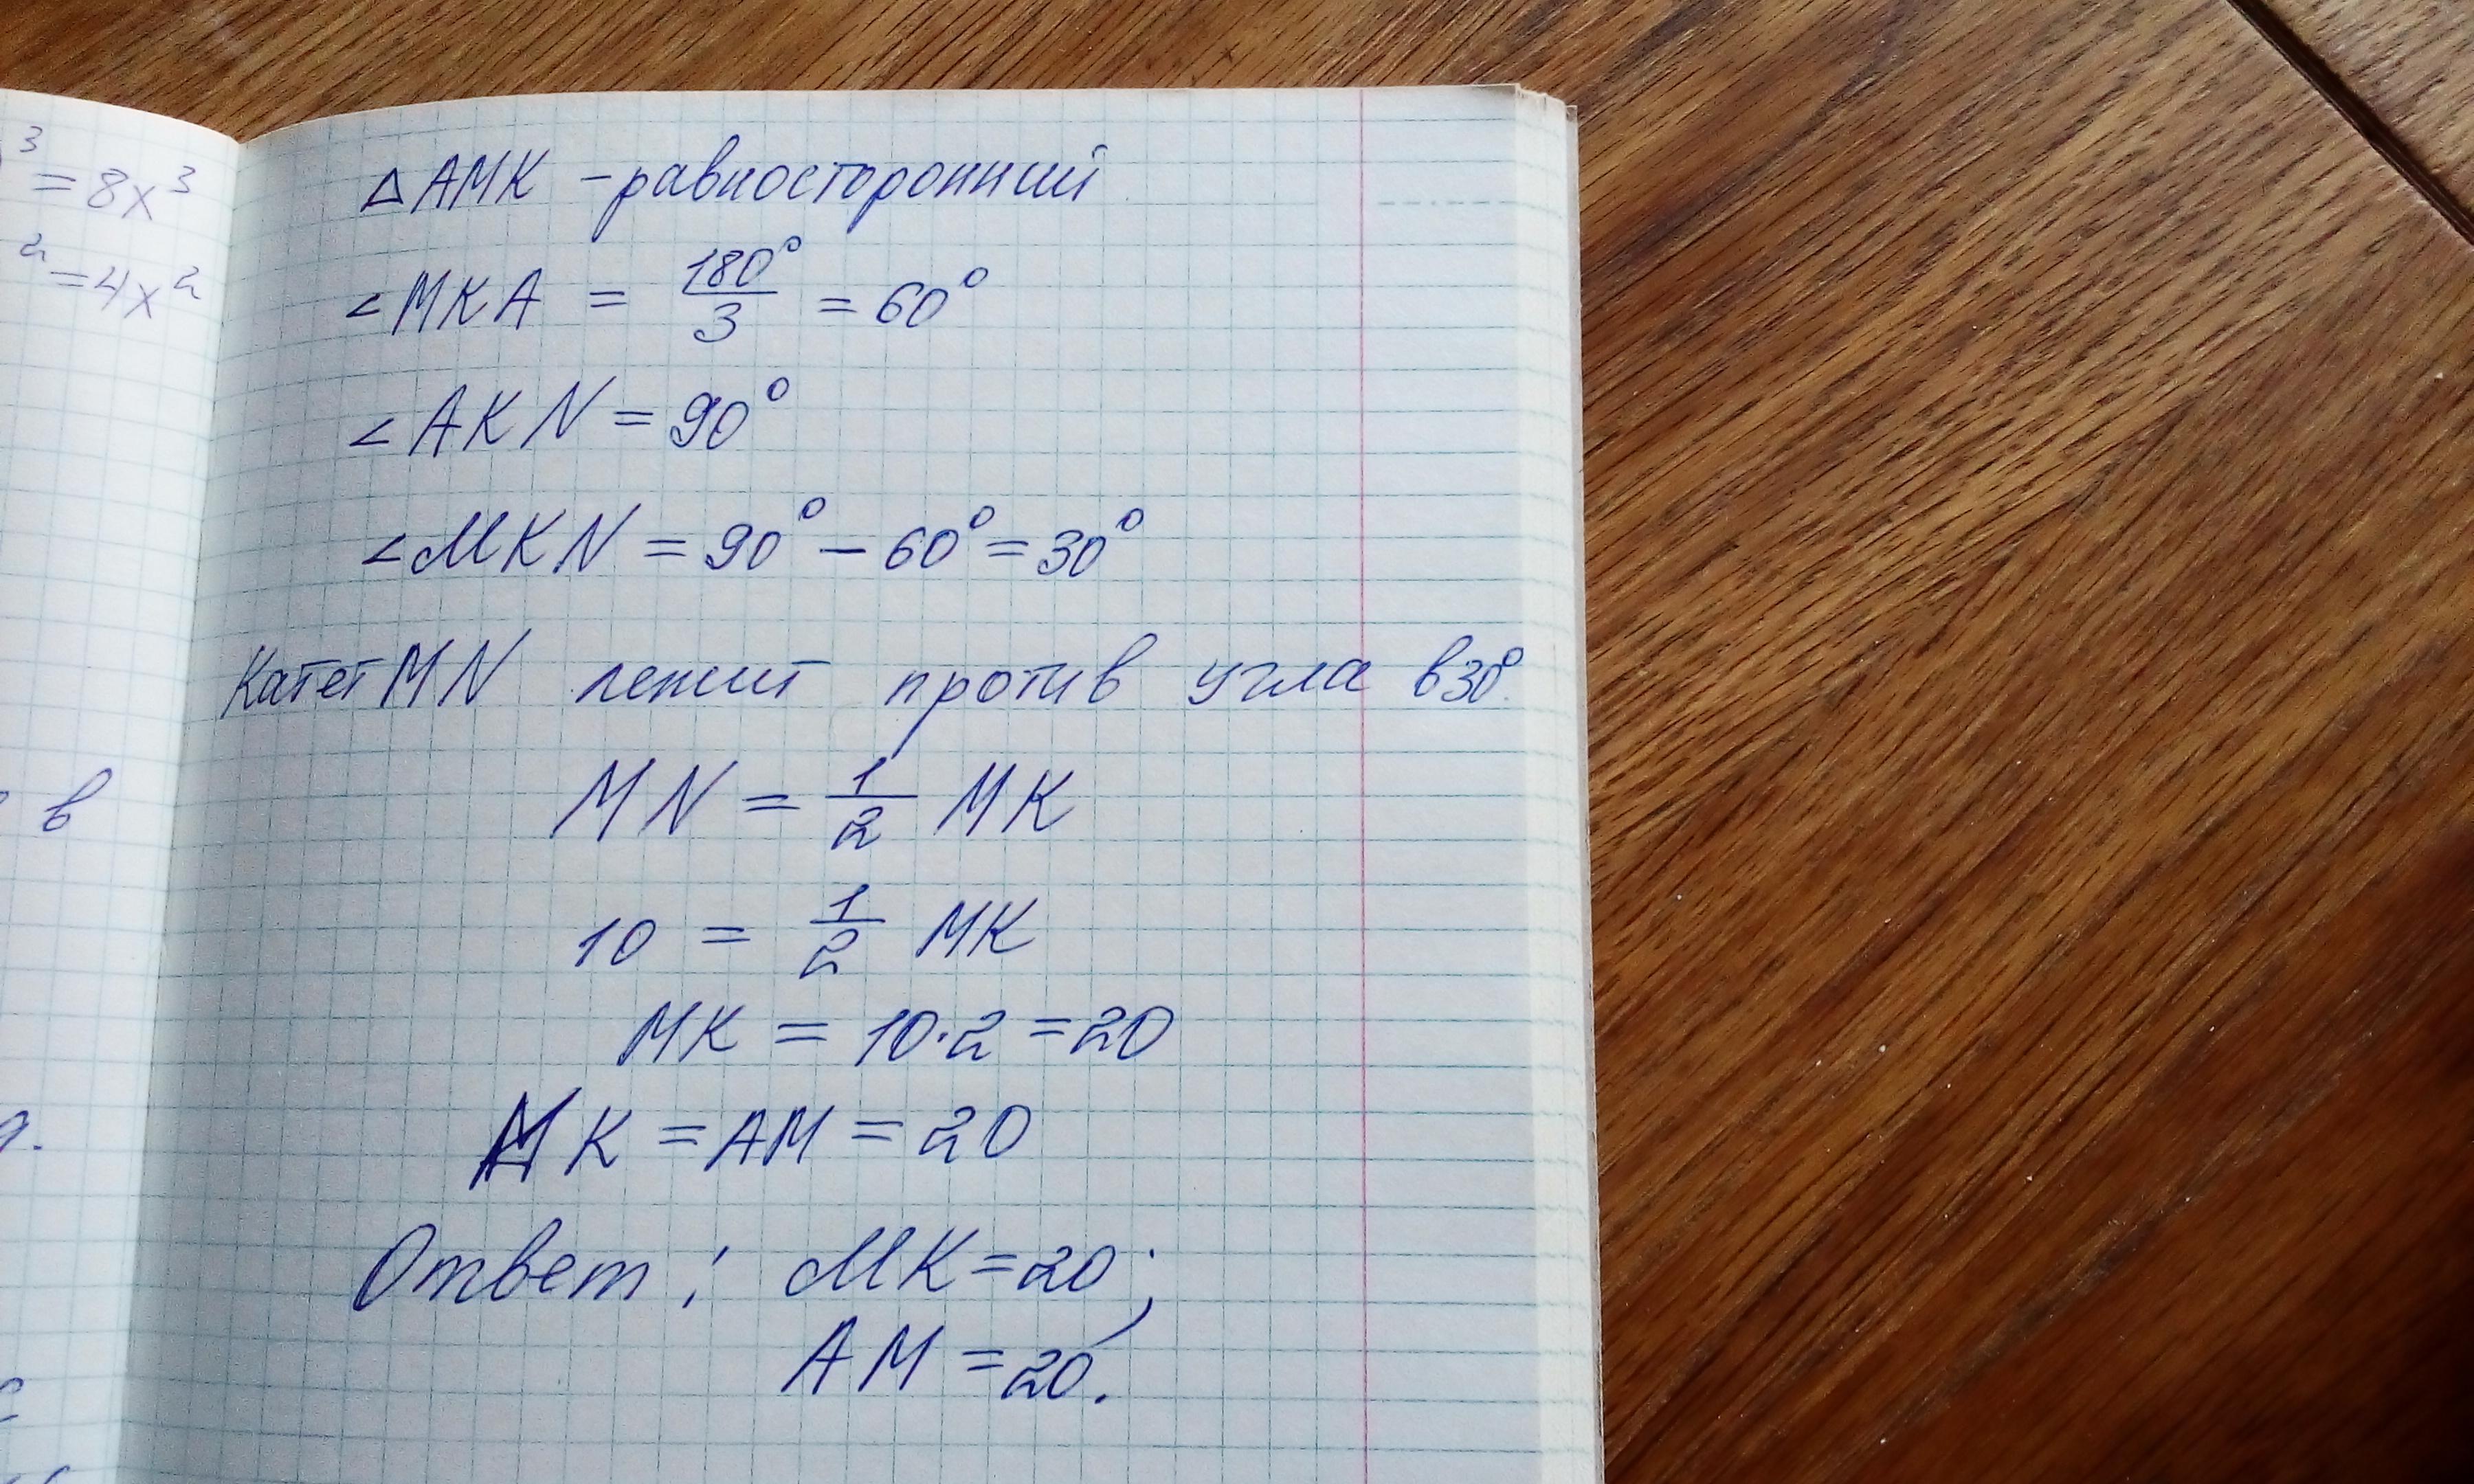 ³ = 8x³
² = 4x²
в
△ AMK - равносторонний
∠MKA = 180°/3 = 60°
∠AKN = 90°
∠MKN = 90° - 60° = 30°
Катет MN лежит против угла в 30°.
MN = 1/2 MK
10 = 1/2 MK
MK = 10·2 = 20
MK = AM = 20
Ответ: MK = 20;
AM = 20.